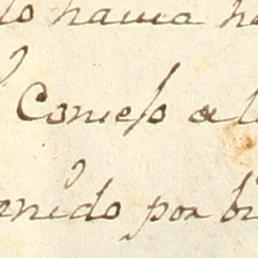 lo havia h
Consejo al
enido por bi